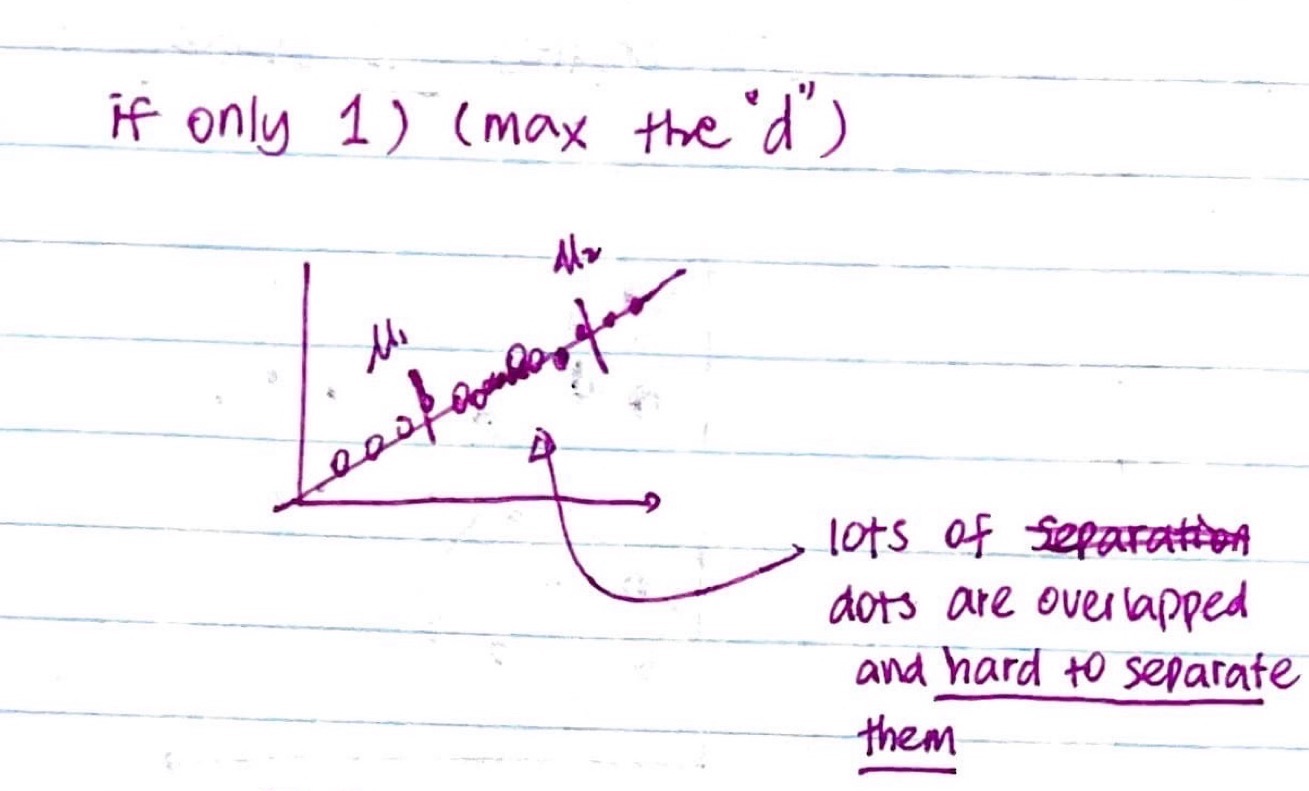 if only 1) (max the "d")
μ₂
μ₁
lots of separation
dots are overlapped
and hard to separate
them